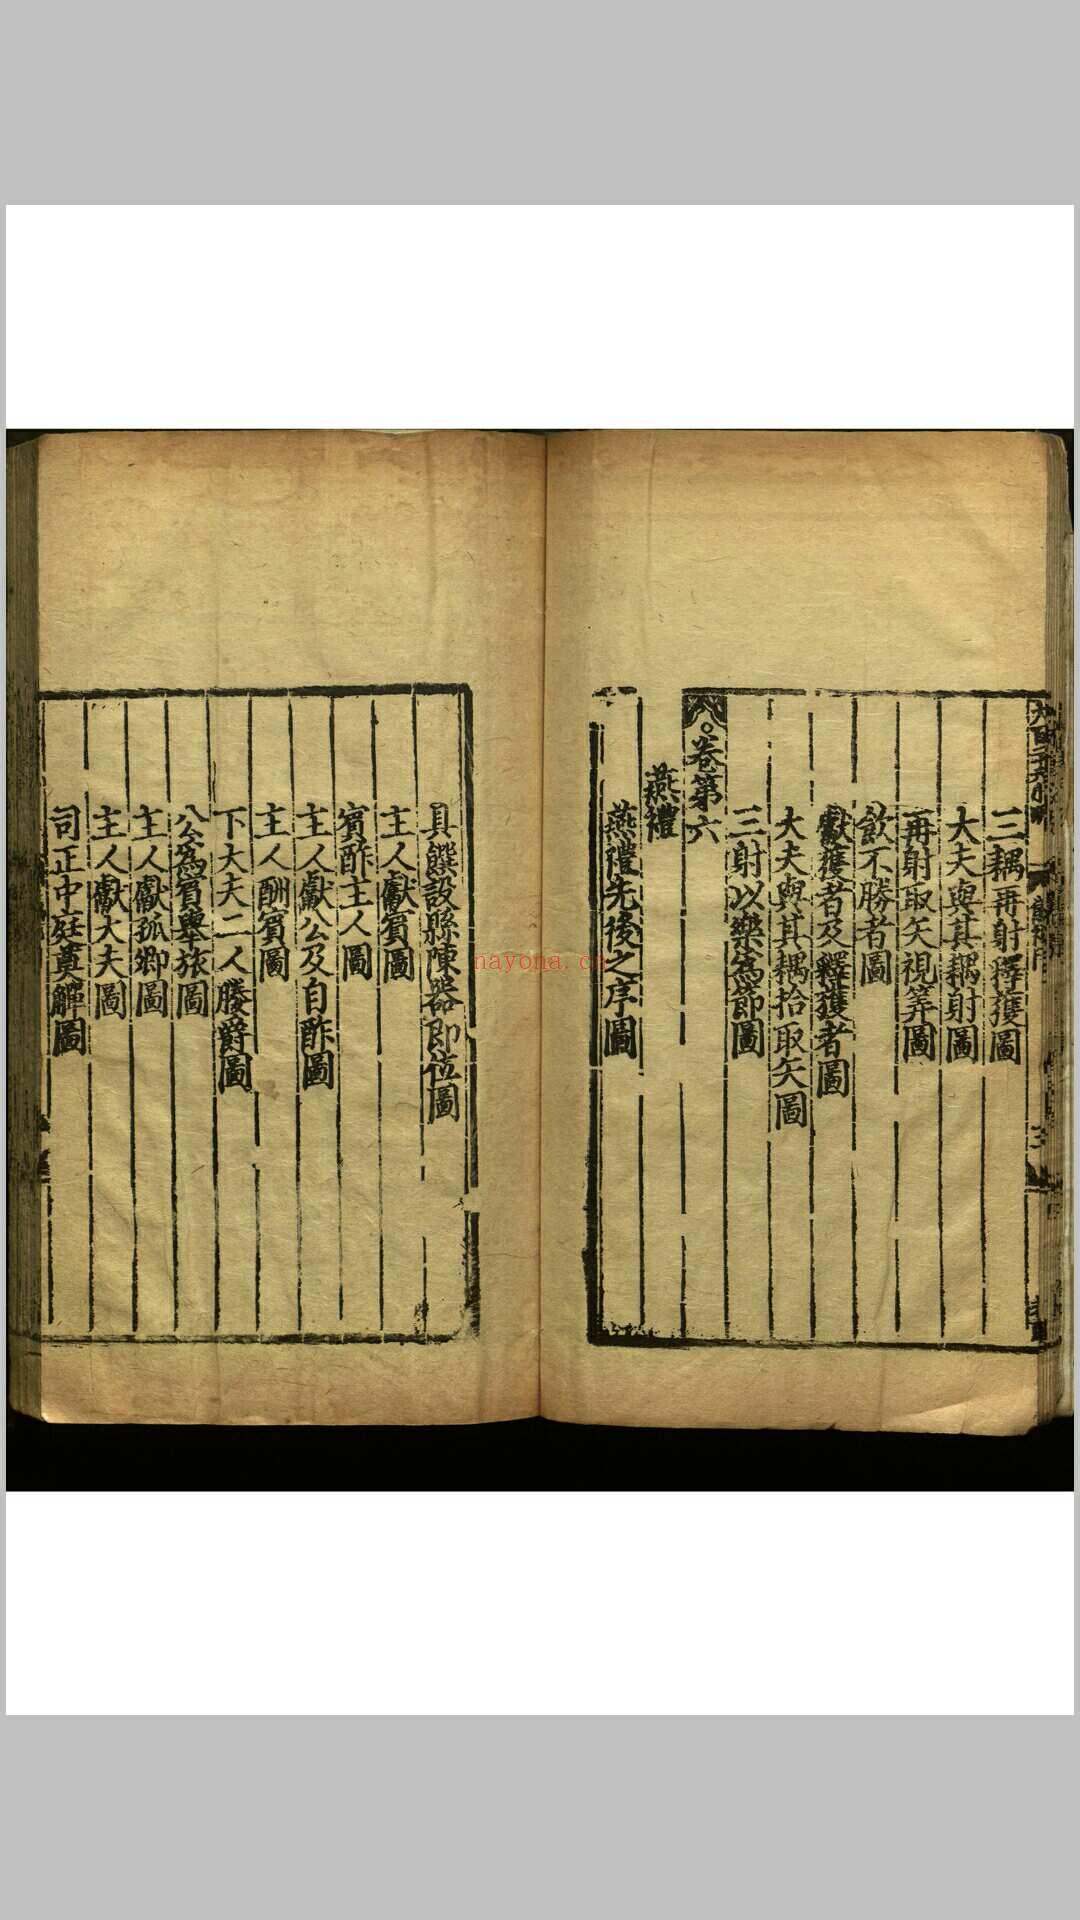 三耦再射釋獲圖
大夫與其耦射圖
再射取矢視筭圖
飲不勝者圖
獻獲者及釋獲者圖
大夫與其耦拾取矢圖
三射以樂爲節圖
卷第六
燕禮
燕禮先後之序圖
具饌設縣陳器即位圖
主人獻賓圖
賓酢主人圖
主人獻公及自酢圖
主人酬賓圖
下大夫二人媵爵圖
公爲賓舉旅圖
主人獻孤卿圖
主人獻大夫圖
司正中庭奠觶圖
nayona.cn